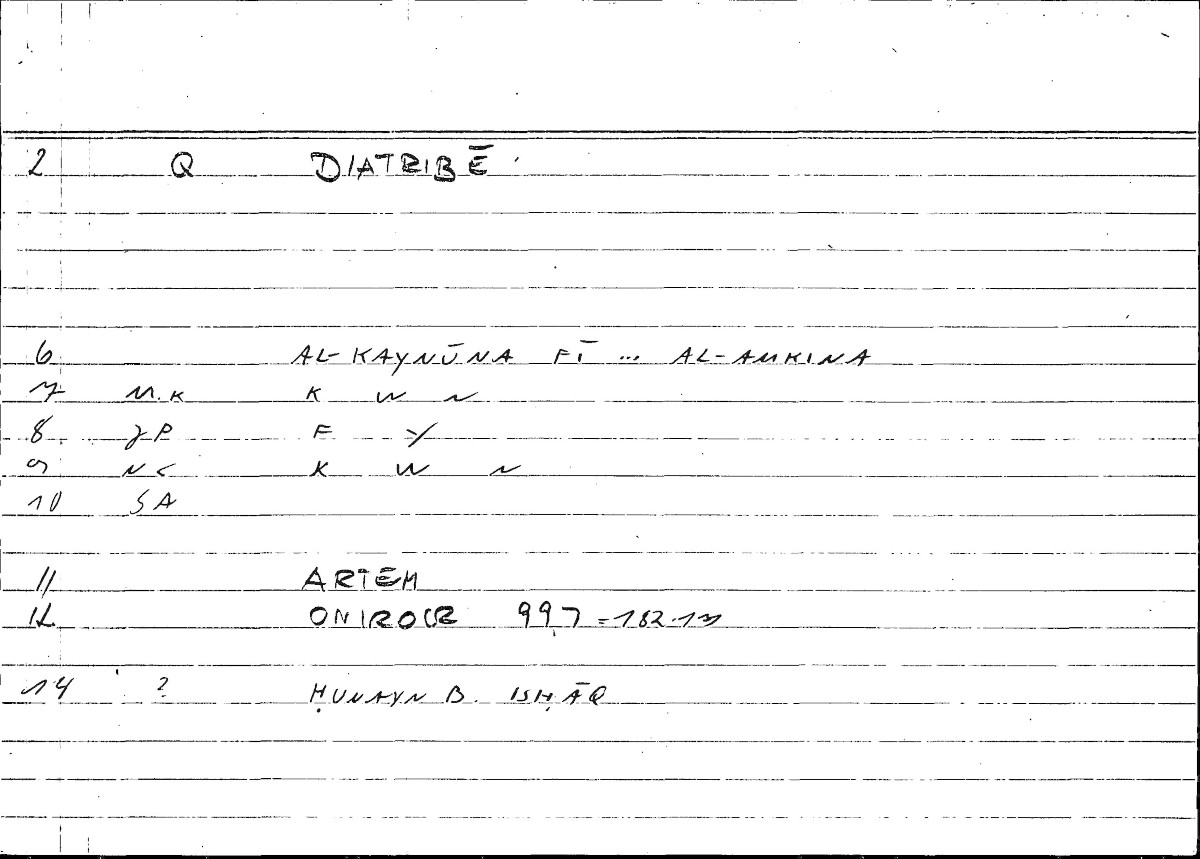 2 Q DIATRIBĒ
6 AL-KAYNŪNA FĪ ... AL-AMKINA
7 M.K K W N
8 JP F Y
9 NC K W N
10 SA
11 ARTEM
12 ONIROCR 99,7 = 182.13
14 ? ḤUNAYN B. ISḤĀQ